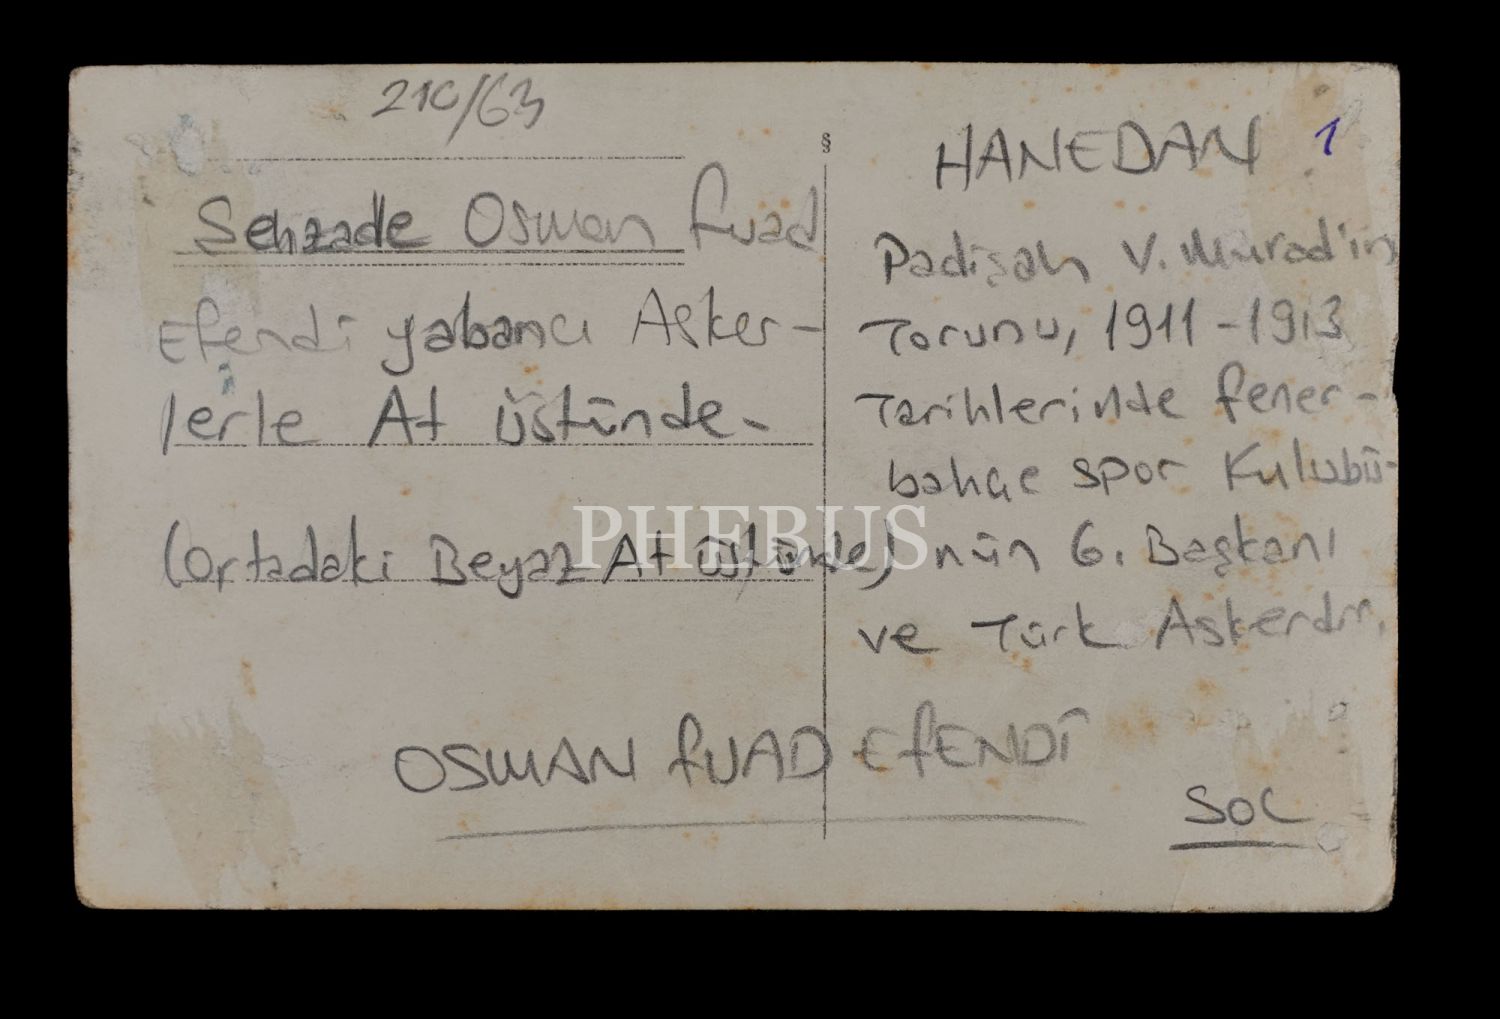 210/63
Şehzade Osman Fuad
Efendi yabancı Asker-
lerle At üstünde.
(Ortadaki Beyaz At üstünde)
HANEDAN 1
Padişah V. Murad'ın
Torunu, 1911-1913
Tarihlerinde fener-
bahçe spor Kulubü-
nün 6. Başkanı
ve Türk Askerdir.
OSMAN FUAD EFENDİ
SOL
§
PHEBUS